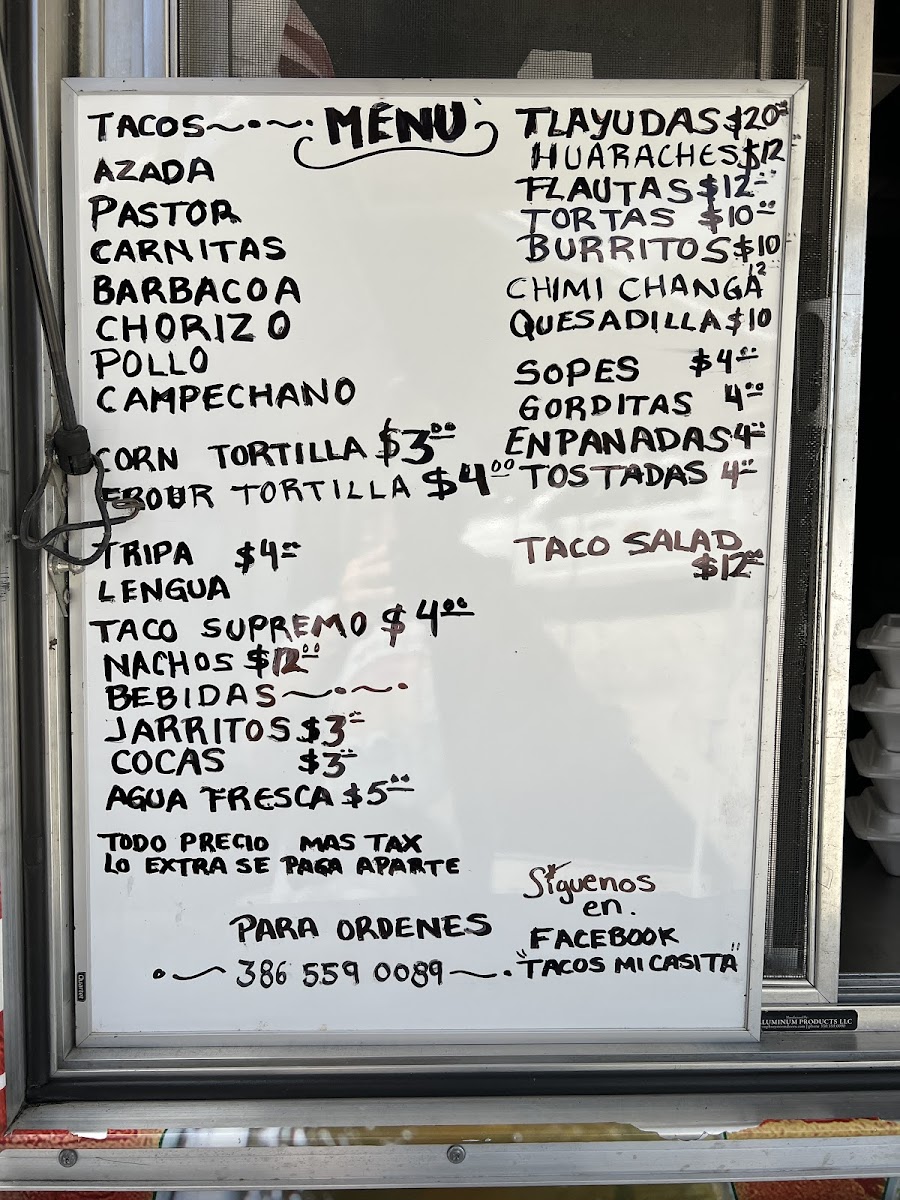 MENU
TACOS
AZADA
PASTOR
CARNITAS
BARBACOA
CHORIZO
POLLO
CAMPECHANO
CORN TORTILLA $3.00
FLOUR TORTILLA $4.00
TRIPA $4.00
LENGUA
TACO SUPREMO $4.00
NACHOS $12.00
BEBIDAS
JARRITOS $3.00
COCAS $3.00
AGUA FRESCA $5.00
TODO PRECIO MAS TAX
LO EXTRA SE PAGA APARTE
PARA ORDENES
386 559 0089
TLAYUDAS $20.00
HUARACHES $12
FLAUTAS $12.00
TORTAS $10.00
BURRITOS $10
CHIMI CHANGA 12
QUESADILLA $10
SOPES $4.00
GORDITAS 4.00
ENPANADAS 4.00
TOSTADAS 4.00
TACO SALAD
$12.00
Síguenos
en.
FACEBOOK
"TACOS MI CASITA"
Quartet
LUMINUM PRODUCTS LLC